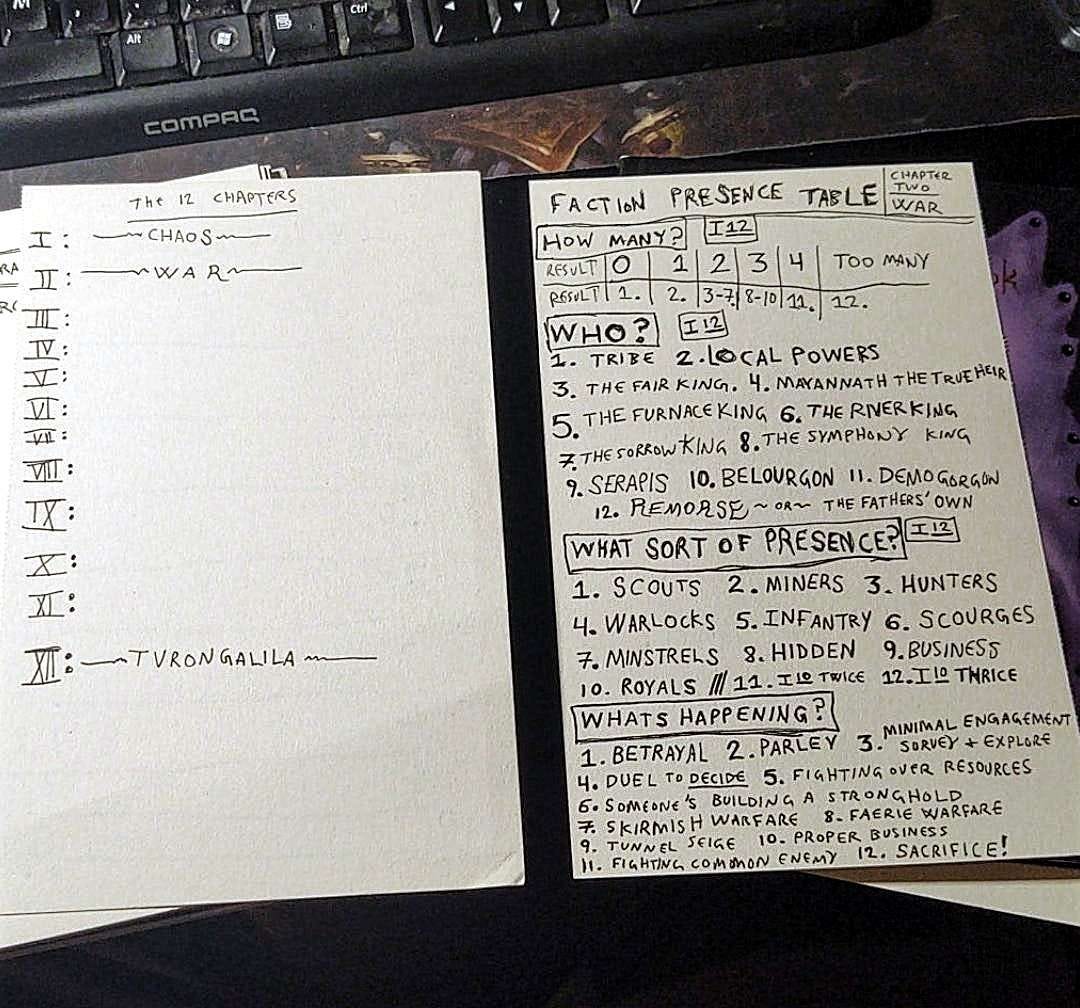 Alt
Ctrl
COMPAQ
The 12 CHAPTERS
I: CHAOS
II: WAR
III:
IV:
V:
VI:
VII:
VIII:
IX:
X:
XI:
XII: TVRONGALILA
FACTION PRESENCE TABLE
CHAPTER
TWO
WAR
HOW MANY? I12
RESULT 0 1 2 3 4 TOO MANY
RESULT 1. 2. 3-7. 8-10 11. 12.
WHO? I12
1. TRIBE 2. LOCAL POWERS
3. THE FAIR KING. 4. MAYANNATH THE TRUE HEIR
5. THE FURNACE KING 6. THE RIVER KING
7. THE SORROW KING 8. THE SYMPHONY KING
9. SERAPIS 10. BELOURGON 11. DEMOGORGON
12. REMORSE ~OR~ THE FATHERS' OWN
WHAT SORT OF PRESENCE? I12
1. SCOUTS 2. MINERS 3. HUNTERS
4. WARLOCKS 5. INFANTRY 6. SCOURGES
7. MINSTRELS 8. HIDDEN 9. BUSINESS
10. ROYALS /// 11. I10 TWICE 12. I10 THRICE
WHATS HAPPENING?
1. BETRAYAL 2. PARLEY 3. MINIMAL ENGAGEMENT
SURVEY + EXPLORE
4. DUEL TO DECIDE 5. FIGHTING OVER RESOURCES
6. SOMEONE'S BUILDING A STRONGHOLD
7. SKIRMISH WARFARE 8. FAERIE WARFARE
9. TUNNEL SEIGE 10. PROPER BUSINESS
11. FIGHTING COMMON ENEMY 12. SACRIFICE!